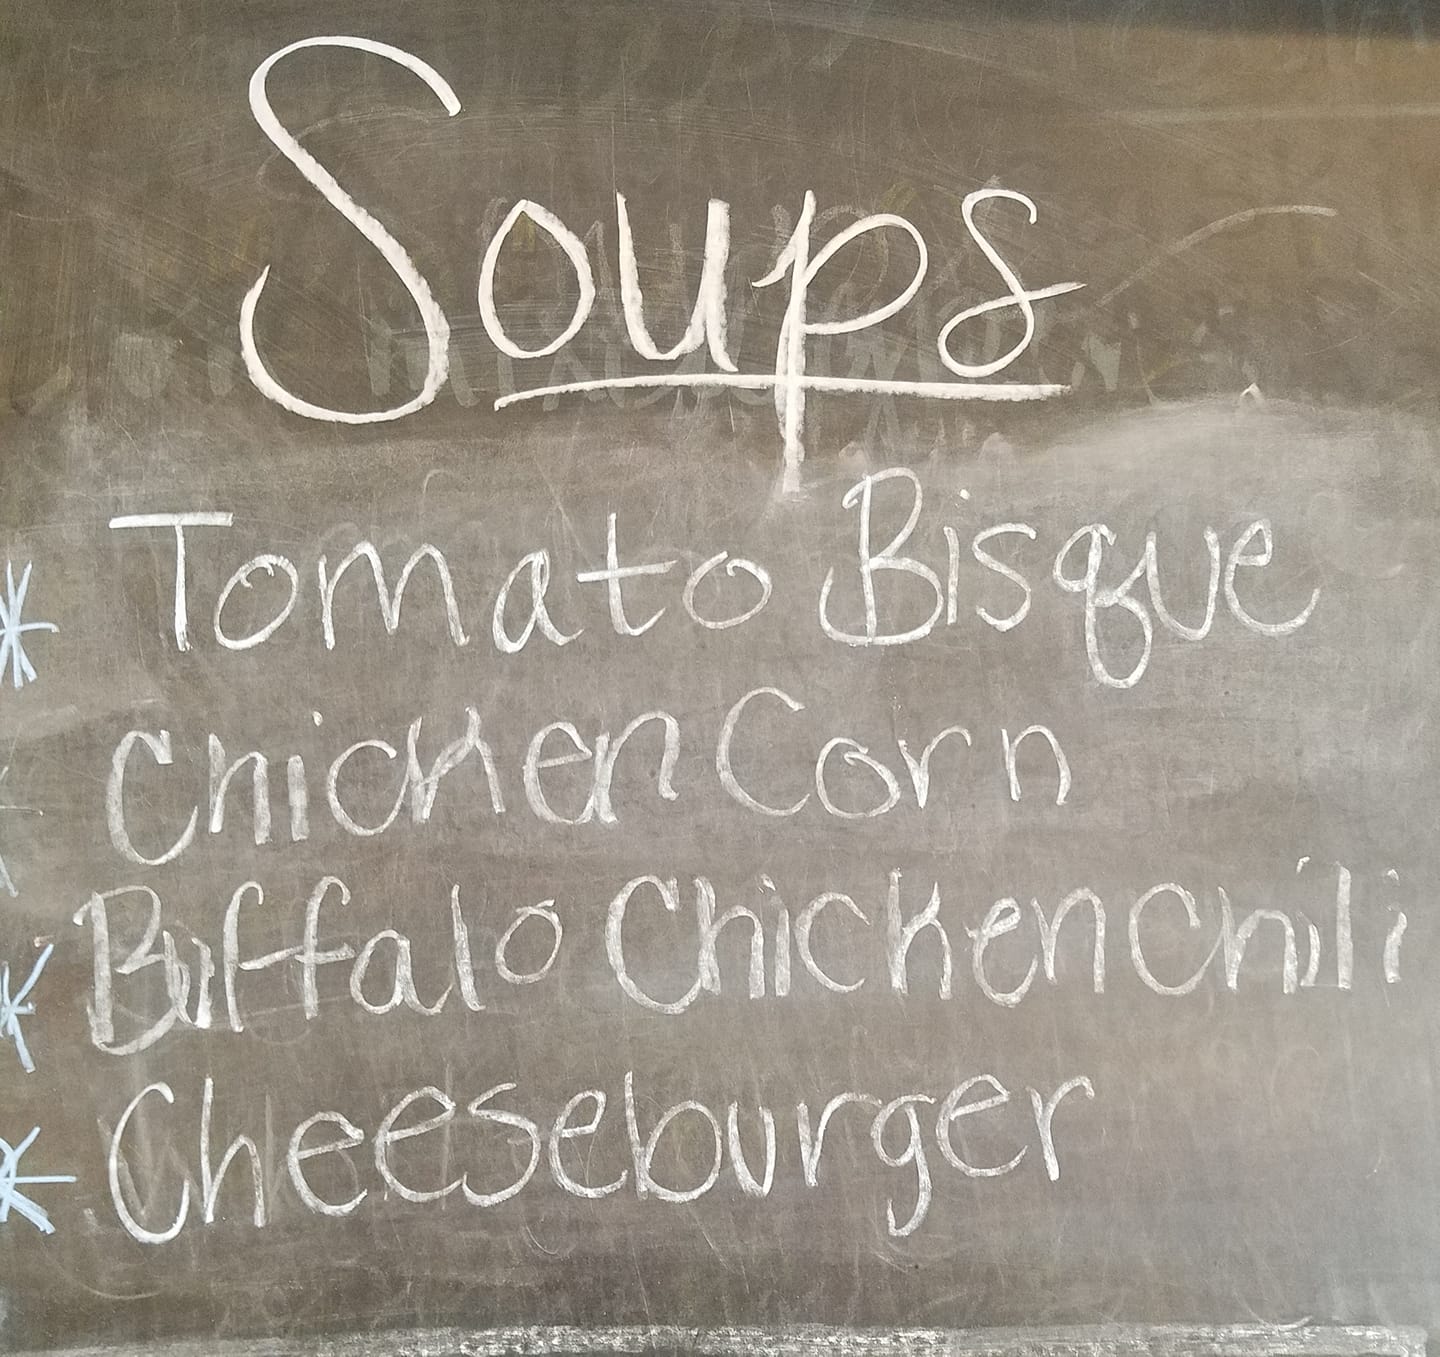 Soups
* Tomato Bisque
Chicken Corn
* Buffalo Chicken Chili
* Cheeseburger